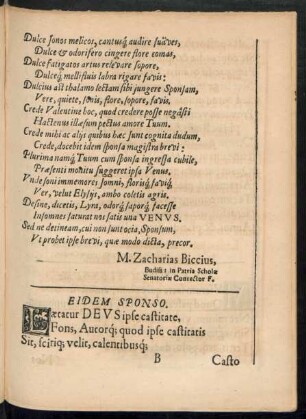 Dulce sonos melicos, cantusq́; audire suäves,
Dulce & odorifero cingere flore comas,
Dulce fatigatos artus relevare sopore,
Dulceq́; mellifluis labra rigare favis:
Dulcius ast thalamo lectam sibi jungere Sponsam,
Vere, quiete, sonis, flore, sopore, favis.
Crede Valentine hoc, quod credere posse negâsti
Hactenus illæsum pectus amore Tuum.
Crede mihi ac alys quibus hæc sunt cognita dudum,
Crede, docebit idem sponsa magistra brevi:
Plurima namq́; Tuum cum sponsa ingressa cubile,
Præsenti monitu suggeret ipsa Venus.
Unde soni immemores somni, florisq́; favisq́;
Ver, velut Elysys, ambo coletis agris.
Desine, dicetis, Lyra, odorq́; soporq́; facesse
Insomnes saturat nos satis una VENUS.
Sed ne detineam, cui non sunt ocia, Sponsum,
Ut probet ipse brevi, quæ modo dicta, precor.
M. Zacharias Biccius,
Budiss: in Patria Scholæ
Senatoriæ Conrector F.
EIDEM SPONSO.
Lætatur DEUS ipse castitate,
Fons, Autorq́; quod ipse castitatis
Sit, sciriq́; velit, calentibusq́;
B Casto